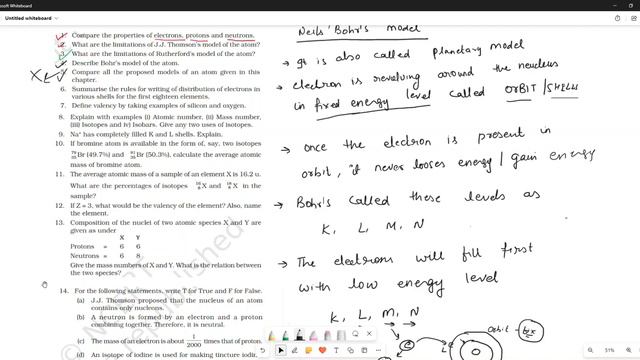 Microsoft Whiteboard
Untitled whiteboard
1. Compare the properties of electrons, protons and neutrons.
2. What are the limitations of J.J. Thomson's model of the atom?
3. What are the limitations of Rutherford's model of the atom?
4. Describe Bohr's model of the atom.
Compare all the proposed models of an atom given in this
chapter.
6. Summarise the rules for writing of distribution of electrons in
various shells for the first eighteen elements.
7. Define valency by taking examples of silicon and oxygen.
8. Explain with examples (i) Atomic number, (ii) Mass number,
(iii) Isotopes and iv) Isobars. Give any two uses of isotopes.
9. Na⁺ has completely filled K and L shells. Explain.
10. If bromine atom is available in the form of, say, two isotopes
⁷⁹₃₅Br (49.7%) and ⁸¹₃₅Br (50.3%), calculate the average atomic
mass of bromine atom.
11. The average atomic mass of a sample of an element X is 16.2 u.
What are the percentages of isotopes ¹⁶₈X and ¹⁸₈X in the
sample?
12. If Z = 3, what would be the valency of the element? Also, name
the element.
13. Composition of the nuclei of two atomic species X and Y are
given as under
X Y
Protons = 6 6
Neutrons = 6 8
Give the mass numbers of X and Y. What is the relation between
the two species?
14. For the following statements, write T for True and F for False.
(a) J.J. Thomson proposed that the nucleus of an atom
contains only nucleons.
(b) A neutron is formed by an electron and a proton
combining together. Therefore, it is neutral.
(c) The mass of an electron is about 1/2000 times that of proton.
(d) An isotope of iodine is used for making tincture iodine,
Neils' Bohr's model
→ It is also called planetary model
→ electron is revolving around the neucleus
in fixed energy level called orBIT / SHELLS
→ once the electron is present in
orbit, "it never looses energy / gain energy
→ Bohr's called these levels as
K, L, M, N
→ The electrons will fill first
with low energy level
K, L, M, N
orbit
51%